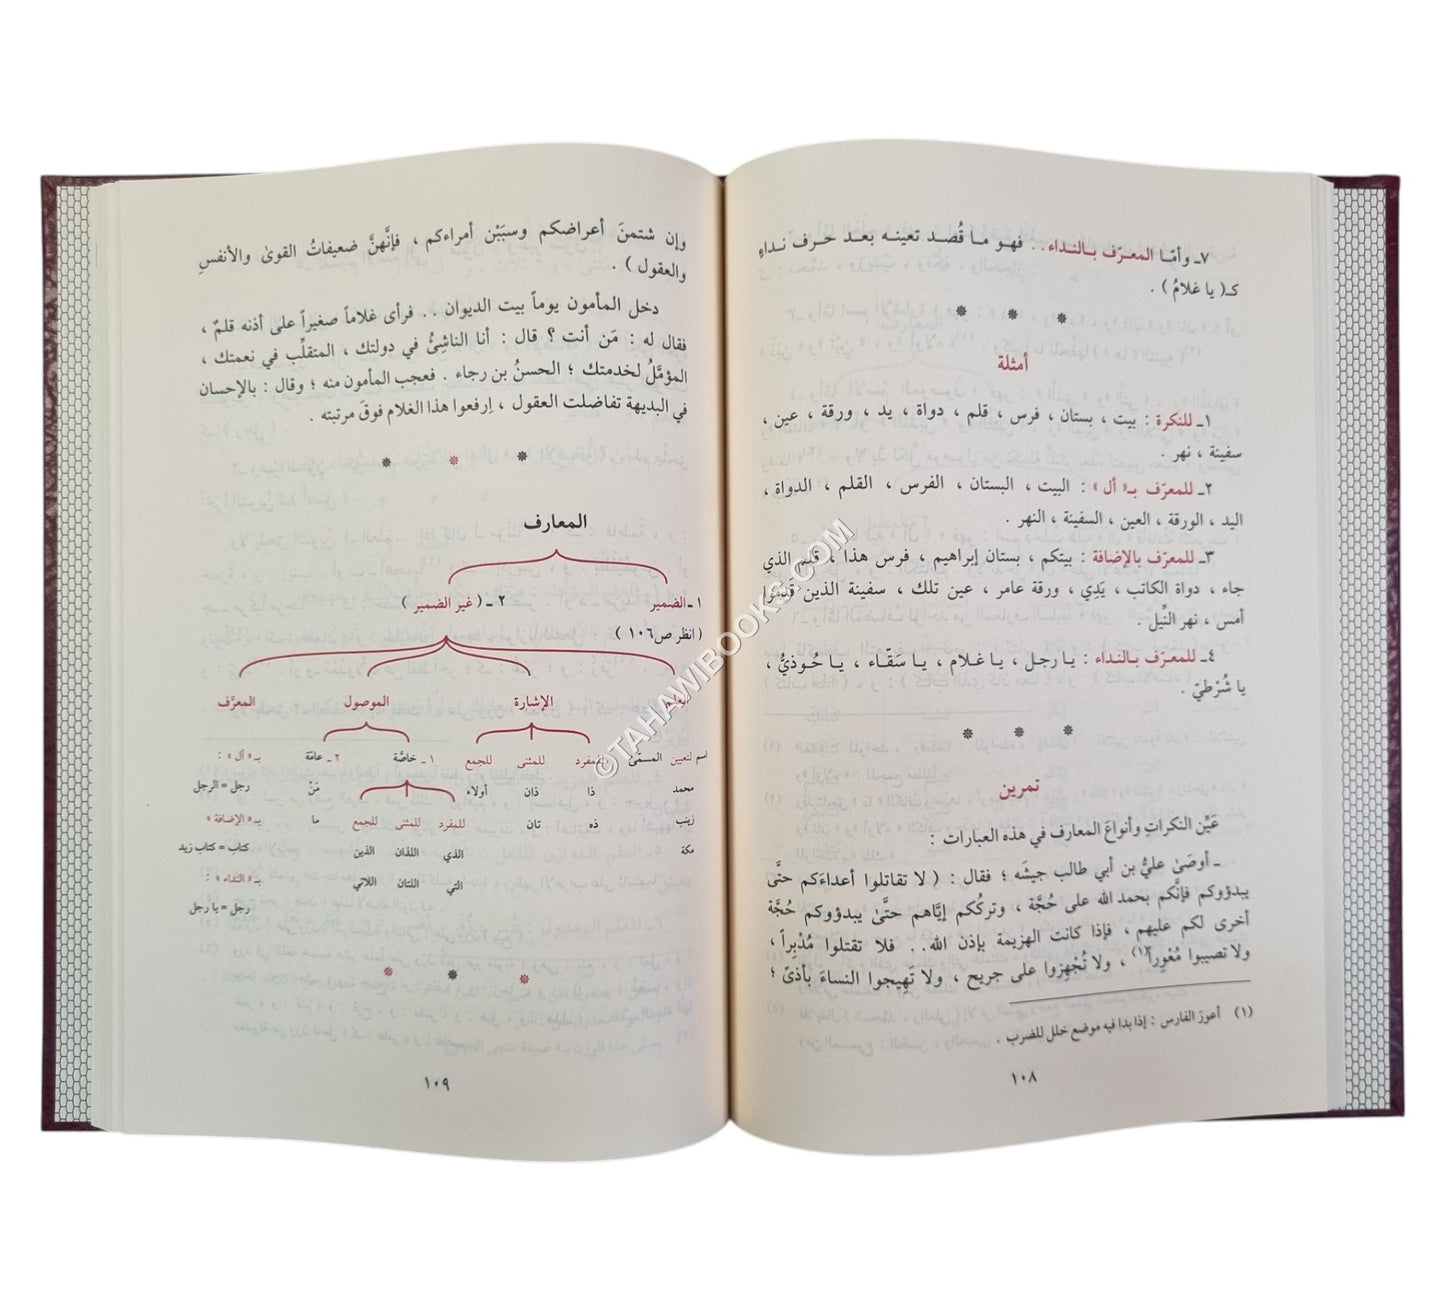 ٧ـ وأمّا المعـرّف بالنـداء . . فهـو مـا قُصـد تعينـه بعـد حـرف نـداءٍ
كـ( يا غلامُ ) .
* * *
أمثلة
١ـ للنكرة : بيت ، بستان ، فرس ، قلم ، دواة ، يد ، ورقة ، عين ،
سفينة ، نهر .
٢ـ للمعرّف بـ« أل » : البيت ، البستان ، الفرس ، القلم ، الدواة ،
اليد ، الورقة ، العين ، السفينة ، النهر .
٣ـ للمعرّف بالإضافة : بيتكم ، بستان إبراهيم ، فرس هذا ، قلم الذي
جاء ، دواة الكاتب ، يَدِي ، ورقة عامر ، عين تلك ، سفينة الذين قَدِموا
أمس ، نهر النِّيل .
٤ـ للمعرّف بـالنـداء : يـا رجل ، يـا غـلام ، يـا سَقّـاء ، يـا حُـوذيُّ ،
يا شُرْطيّ .
* * *
تمرين
عَيِّن النكراتِ وأنواعَ المعارف في هذه العبارات :
ـ أوصَىٰ عليُّ بن أبي طالب جيشَه ؛ فقال : ( لا تقاتلوا أعداءَكم حتَّى
يبدؤوكم فإنَّكم بحمد الله على حُجَّة ، وتركُكم إيَّاهم حتَّىٰ يبدؤوكم حُجَّة
أخرى لكم عليهم ، فإذا كانت الهزيمة بإذن الله . . فلا تقتلوا مُدْبِراً ،
ولا تصيبوا مُعْوِراً(١) ، ولا تُجْهِزوا على جريح ، ولا تَهِيجوا النساءَ بأذىً ؛
(١) أعورَ الفارس : إذا بدا فيه موضع خلل للضرب .
١٠٨
وإن شتمنَ أعراضكم وسبَبْن أمراءكم ، فإنَّهنَّ ضعيفاتُ القوىٰ والأنفسِ
والعقول ) .
دخل المأمون يوماً بيت الديوان . . فرأى غلاماً صغيراً على أذنه قلمٌ ،
فقال له : مَن أنت ؟ قال : أنا الناشِئُ في دولتك ، المتقلِّب في نعمتك ،
المؤمَّلُ لخدمتك ؛ الحسنُ بن رجاء . فعجب المأمون منه ؛ وقال : بالإحسان
في البديهة تفاضلت العقول ، اِرفعوا هذا الغلام فوقَ مرتبته .
* * *
المعارف
١ ـ الضمير ٢ ـ ( غير الضمير )
( انظر ص١٠٦ )
العلم الإشارة الموصول المعرَّف
اسم لتعيين المسمَّىٰ للمفرد للمثنى للجمع ١ ـ خاصَّة ٢ ـ عامَّة بـ« أل » :
محمد ذا ذان أولاء مَنْ رجل = الرجل
زينب ذه تان للمفرد للمثنى للجمع ما بـ« الإضافة »
مكة الذي اللذان الذين كتاب = كتاب زيد
التي اللتان اللاتي بـ« النداء » :
رجل = يا رجل
* * *
١٠٩
© TAHAWIBOOKS.COM